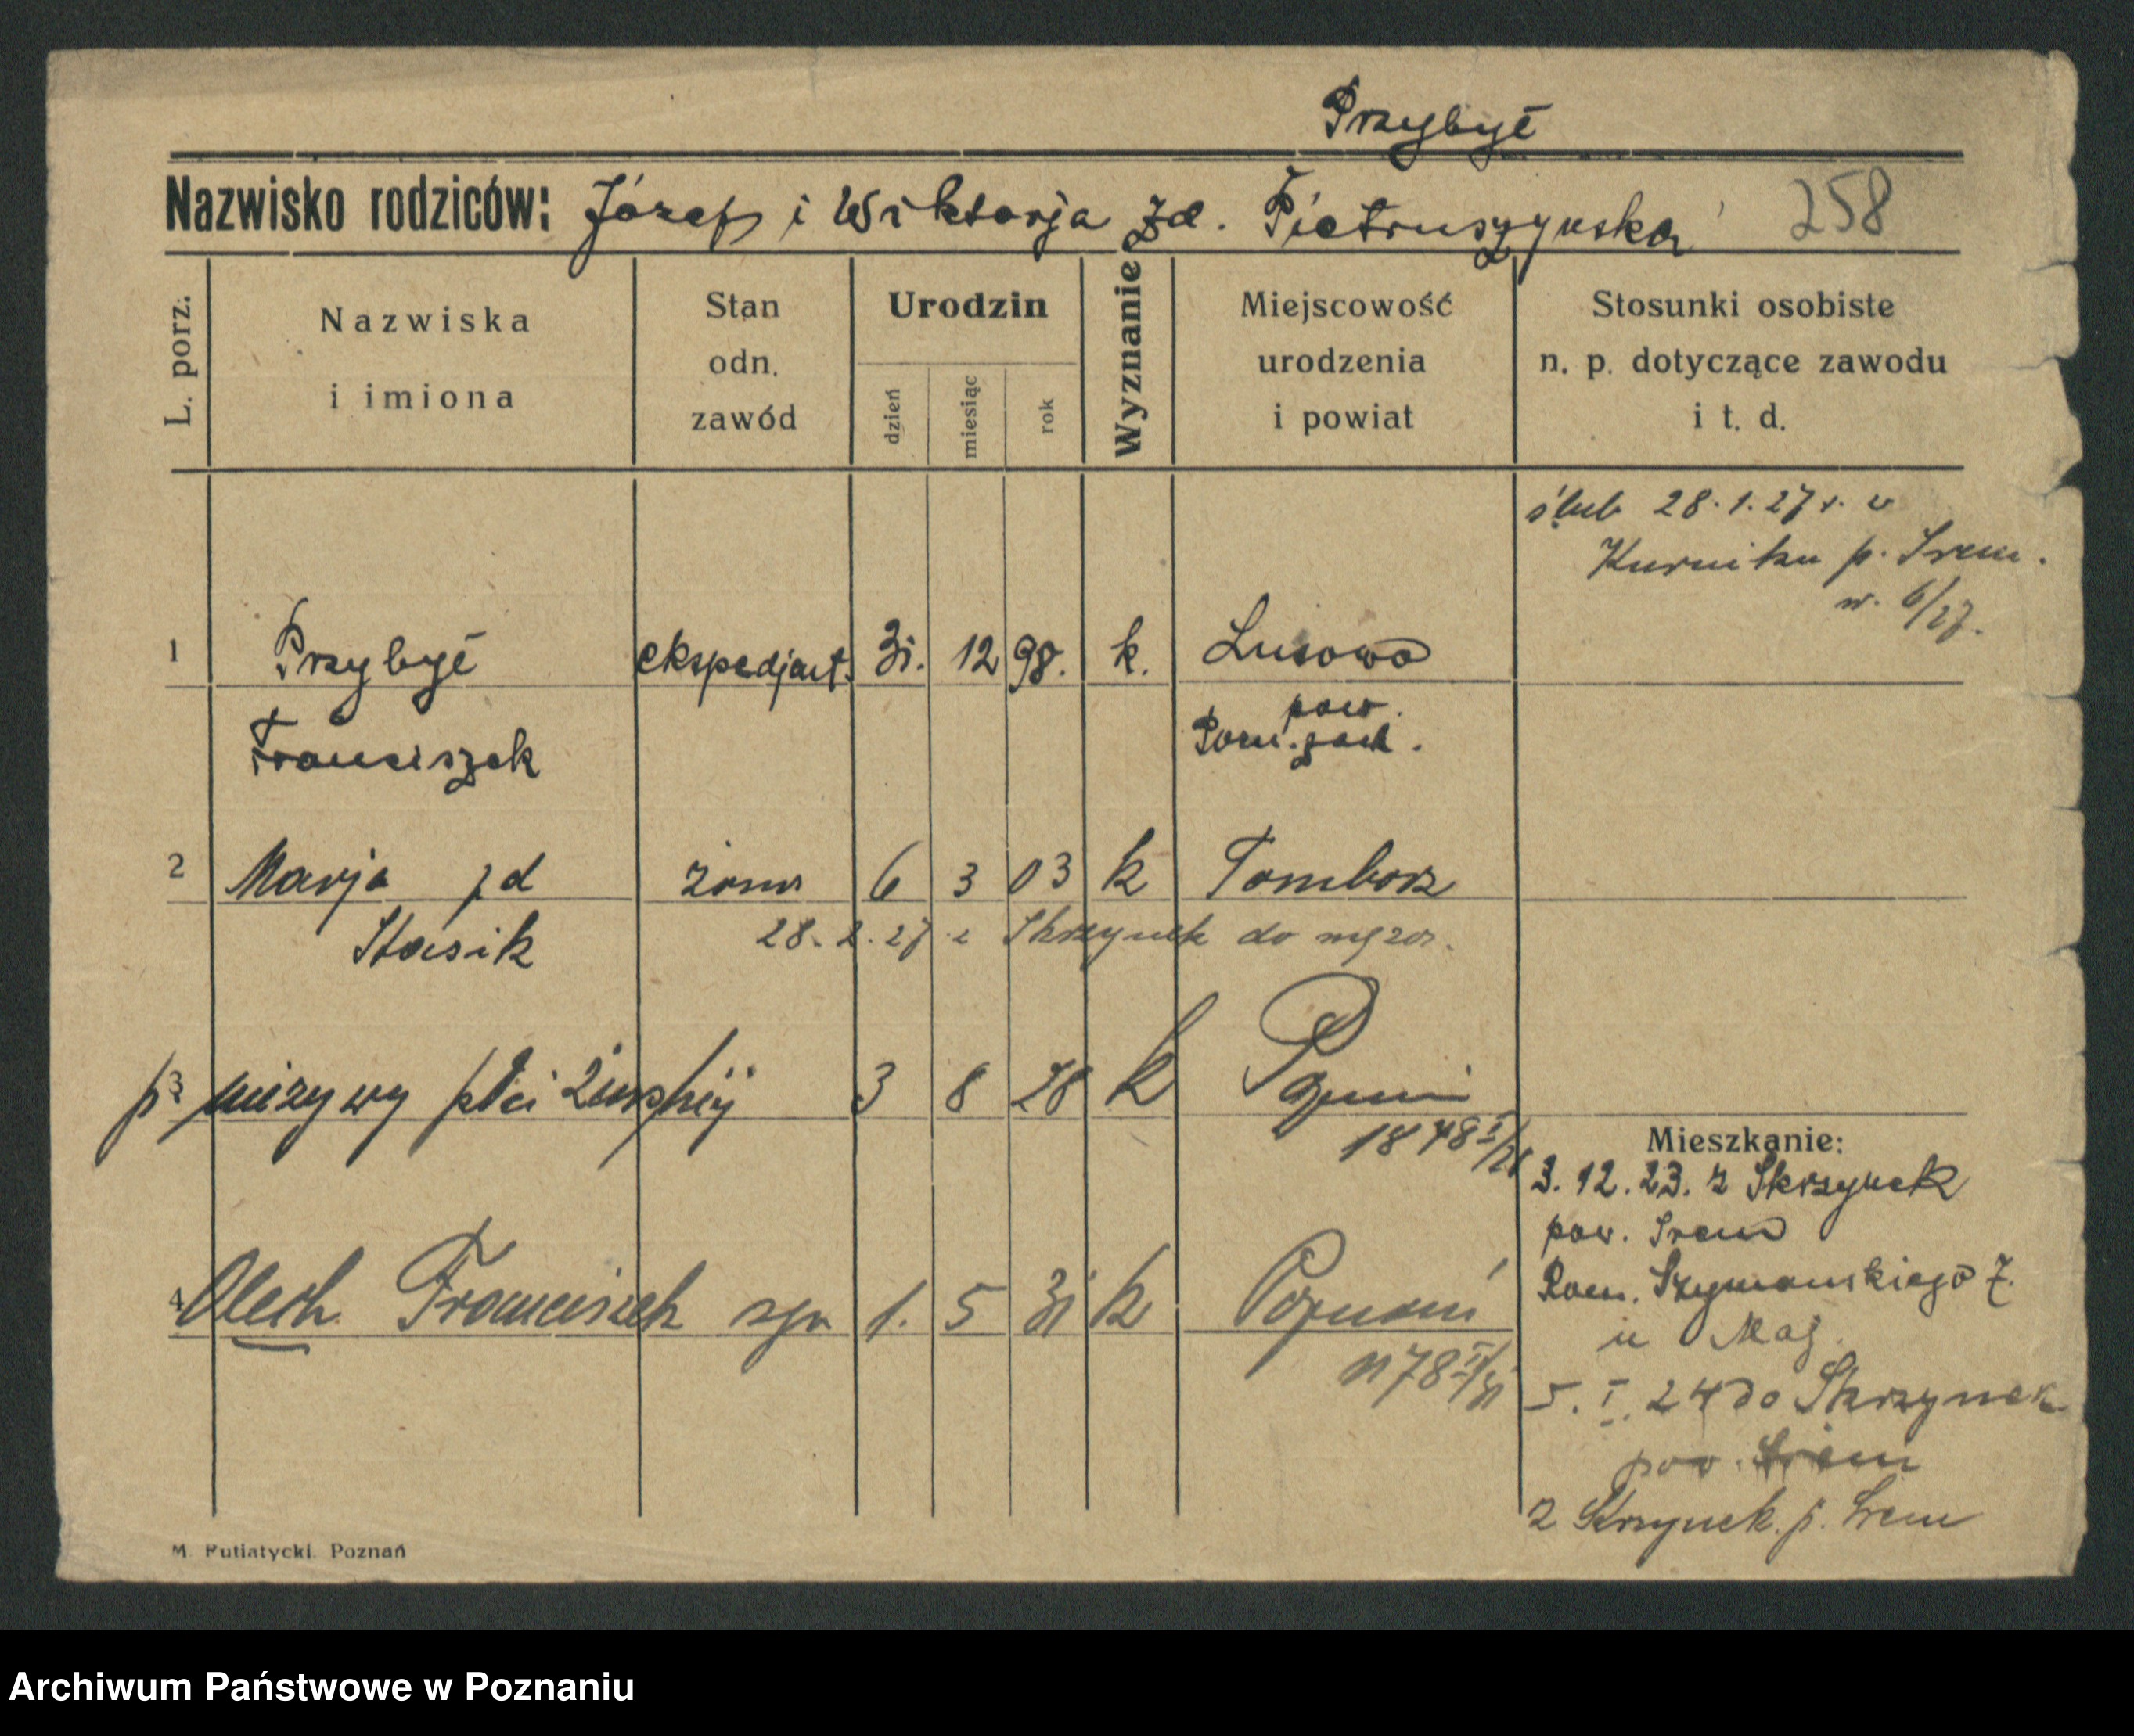 Przybył
Nazwisko rodziców: Józef i Wiktorja zd. Pietruszyńska 258
L. porz.
Nazwiska
i imiona
Stan
odn.
zawód
Urodzin
dzień
miesiąc
rok
Wyznanie
Miejscowość
urodzenia
i powiat
Stosunki osobiste
n. p. dotyczące zawodu
i t. d.
ślub 28.1.27 r. w
Kurniku p. Śrem.
nr. 6/27.
1 Przybył ekspedjent. 31. 12 98. k. Lusowo
pow.
Franciszek Pozn. zach.
2 Marja zd żona 6 3 03 k Tomborz
Stasik 28.2.27 z Skrzynek do męża.
3 nieżywy płci żeńskiej 3 8 28 k Poznań
1848 I/28
Mieszkanie:
3.12.23. z Skrzynek
pow. Śrem
Szymańskiego 7.
u Maj.
4 Olech Franciszek syn 1. 5 31 k Poznań
n 78 II/31
5. I. 24 do Skrzynek
pow. Śrem
z Skrzynek. p. Śrem
M. Putiatycki. Poznań
Archiwum Państwowe w Poznaniu